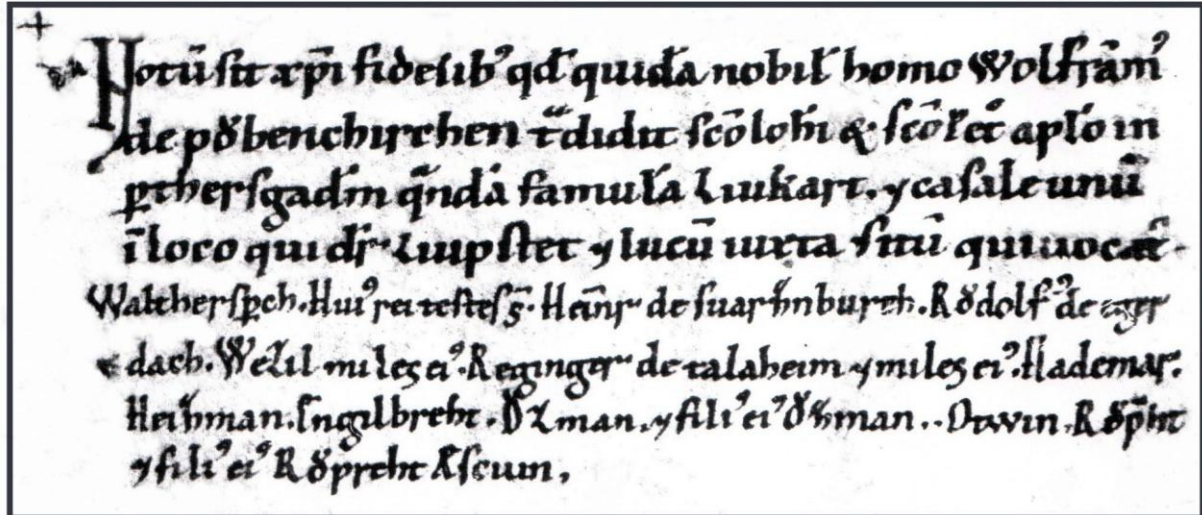 Notū sit xp̄i fidelib᾽ qđ quidā nobił homo Wolfrām᾽
de půbenchirchen t̄didit sc̄o Ioh̄i & sc̄o Pet͛ apl̄o in
ꝑthersgadm̄ qndā famulā Liukart. ⁊ casale unū
ī loco qui dr̄ Liupstet ⁊ lucū iuxta sitū qui uocat̄
Waltherspch. Hui᾽ rei testes s̄. Heinr̄ de suarhnburch. Růdolf᾽ de ager
dach. Wezil miles ei᾽. Reginger de talaheim ⁊ miles ei᾽. Hademar.
Heriman. Engilbreht. Ůzman. ⁊ fili᾽ ei᾽ . Otwin. Růp̄ht
⁊ fili᾽ ei᾽ Růpreht Æscuin.